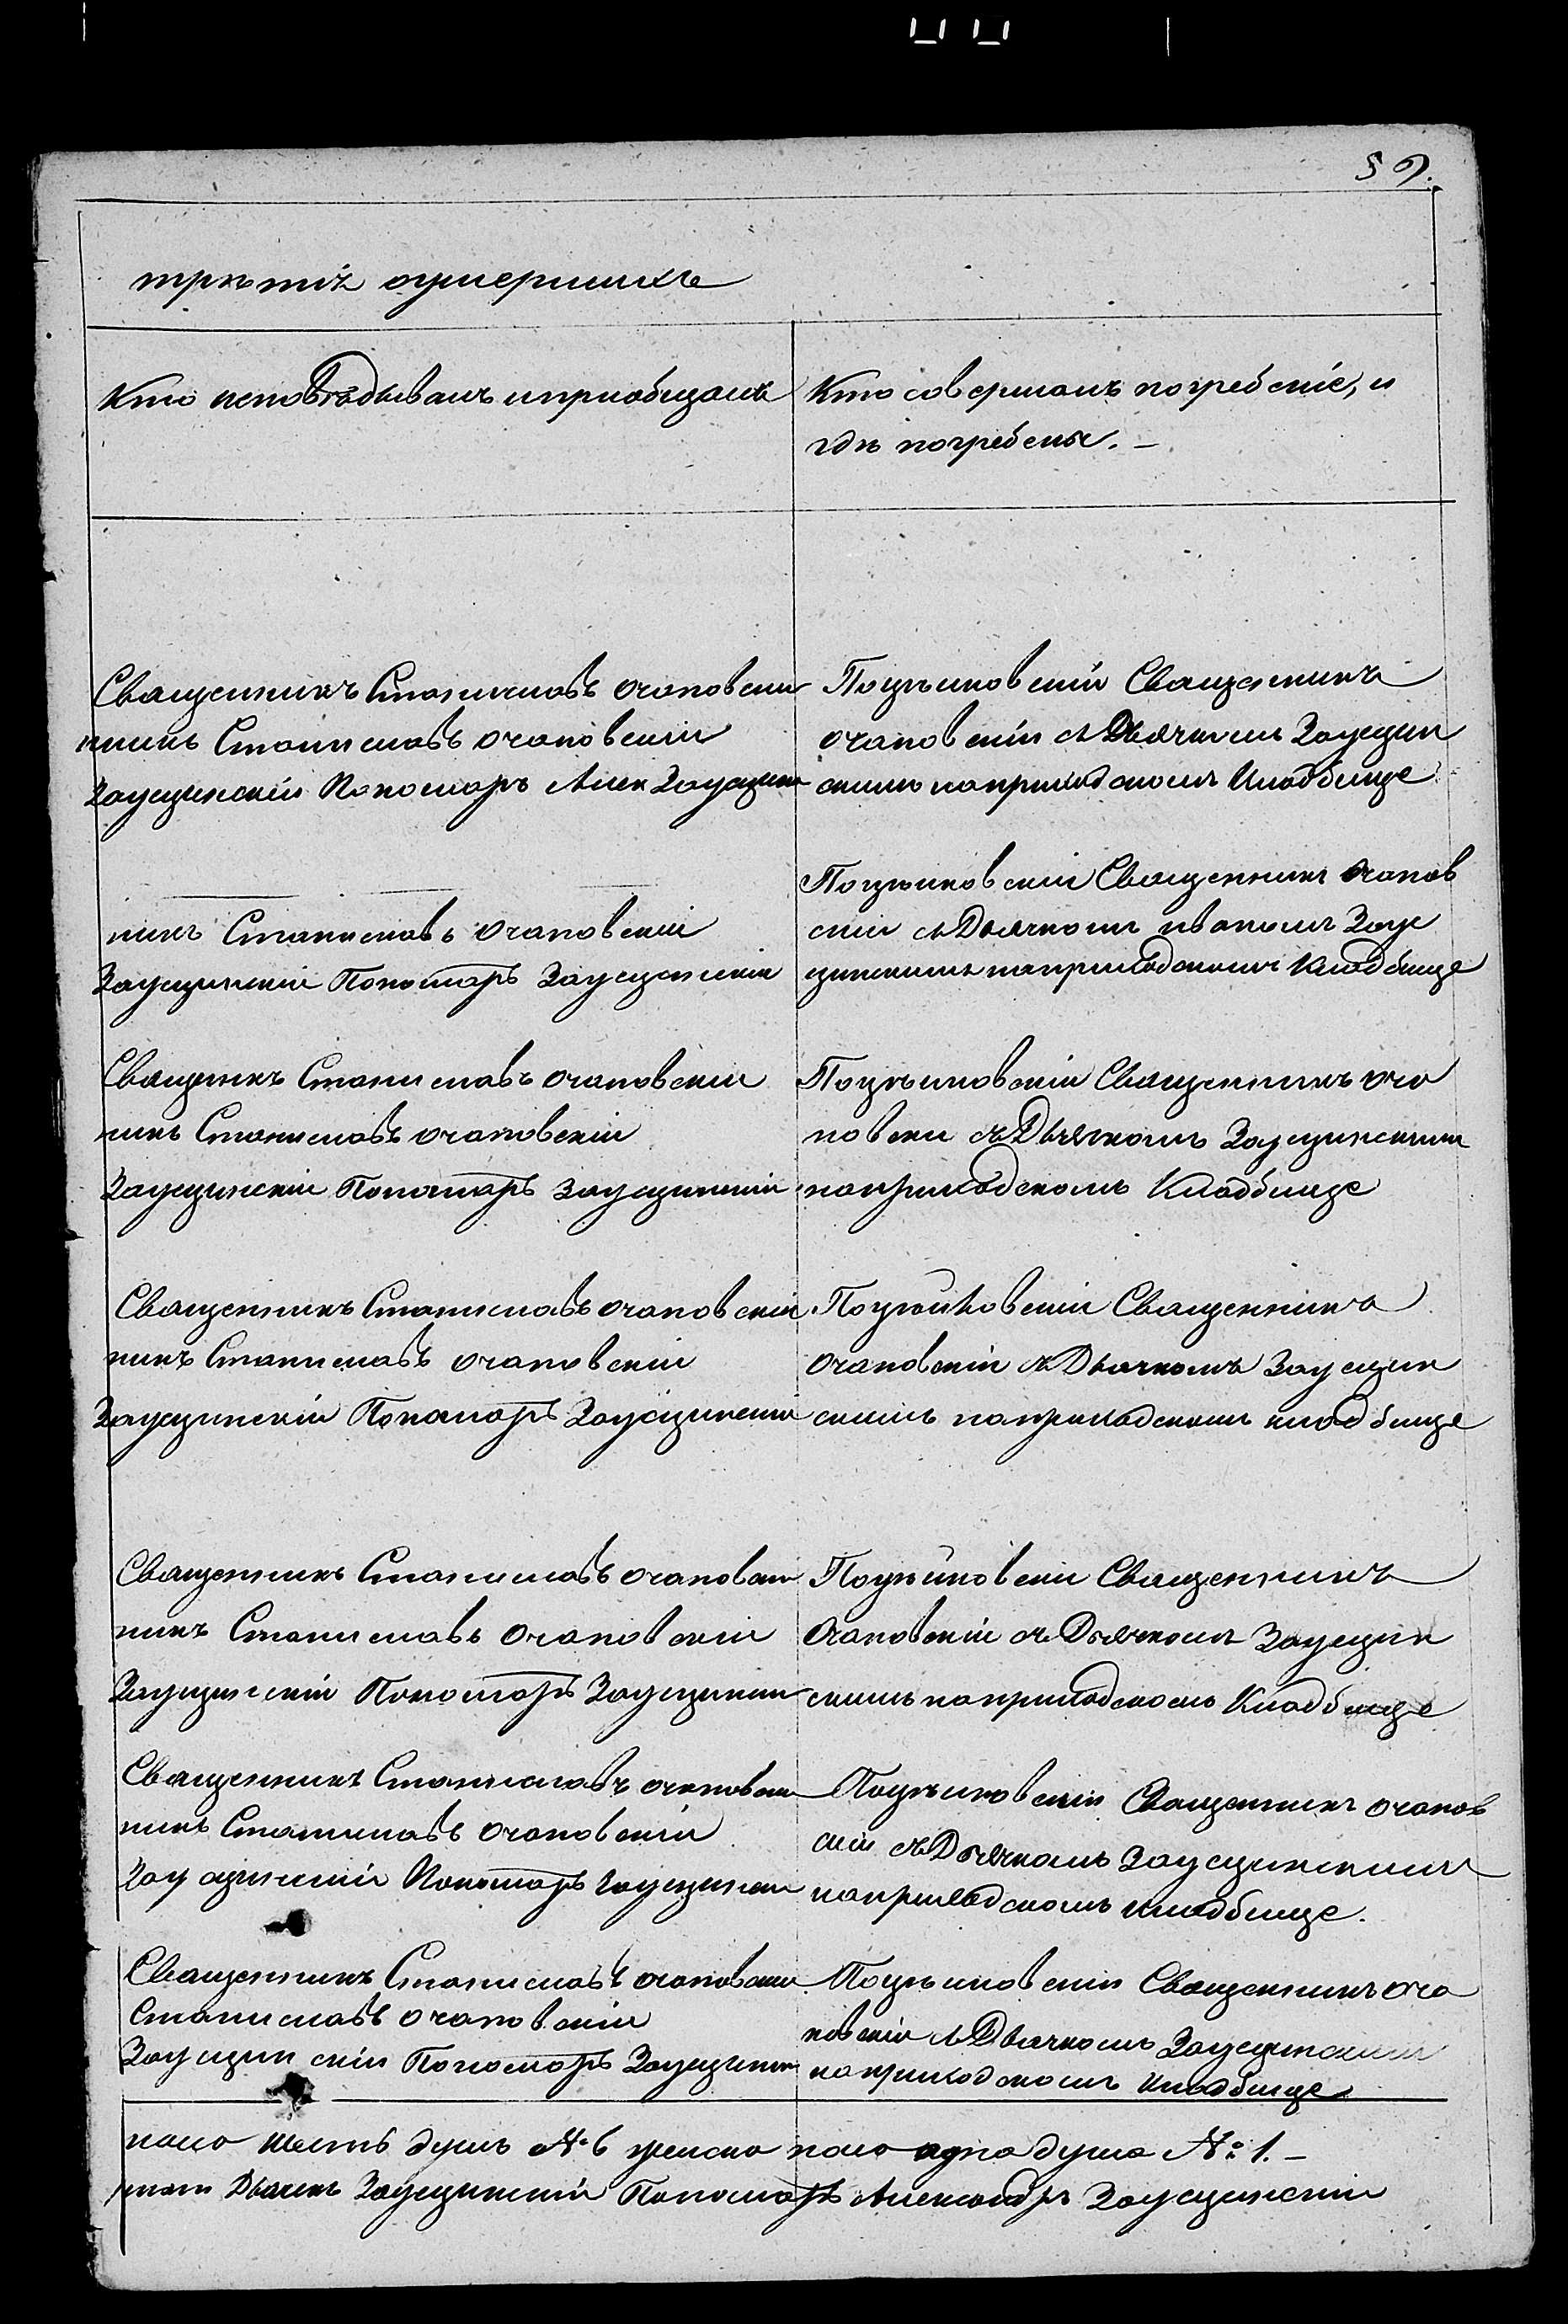 59.
третіѣ оумершихъ
Кто исповѣдывалъ и приобщалъ
Кто совершалъ погребеніе, и
гдѣ погребены. —
Священникъ Станиславъ Очаповски
никъ Станиславъ Очаповскіи
Заусцинскіи Пономаръ Алек Заусцин
Священникъ
Очаповскіи съ Дьячкомъ Заусцин
скимъ наприходскомъ Кладбище
никъ Станиславъ Очаповскіи
Заусцинскіи Пономаръ Заусцинскіи
Священникъ Очапов
скіи съ Дьячкомъ иваномъ Заус
цинскимъ наприходскомъ Кладбище
Священикъ Станиславъ Очаповскіи
никъ Станиславъ Очаповскіи
Заусцинскіи Пономаръ Заусцинскіи
Священникъ Оча
повски съ Дьячкомъ Заусцинским
наприходскомъ Кладбище
Священникъ Станиславъ Очаповскіи
никъ Станиславъ Очаповскіи
Заусцинскіи Пономаръ Заусцински
Священникъ
Очаповскіи съ Дьячкомъ Заусцин
скимъ наприходскомъ кладбище
Священникъ Станиславъ Очаповски
никъ Станиславъ Очаповскіи
Заусцинскіи Пономаръ Заусцински
Священникъ
Очаповскіи съ Дьячкомъ Заусцин
скимъ наприходскомъ Кладбище
Священникъ Станиславъ Очаповски
никъ Станиславъ Очаповскіи
Заусцинскіи Пономаръ Заусцински
Священникъ Очапов
скіи съ Дьячкомъ Заусцинскимъ
наприходскомъ кладбище.
Священникъ Станиславъ Очаповски
Станиславъ Очаповскіи
Заусцинскіи Пономаръ Заусцински
Священникъ Оча
повскіи съ Дьячкомъ Заусцинским
наприходскомъ Кладбище
пола шесть душъ № 6 женска пола одна душа №: 1. —
Дьячекъ Заусцинскіи Пономаръ Александръ Заусцинскіи